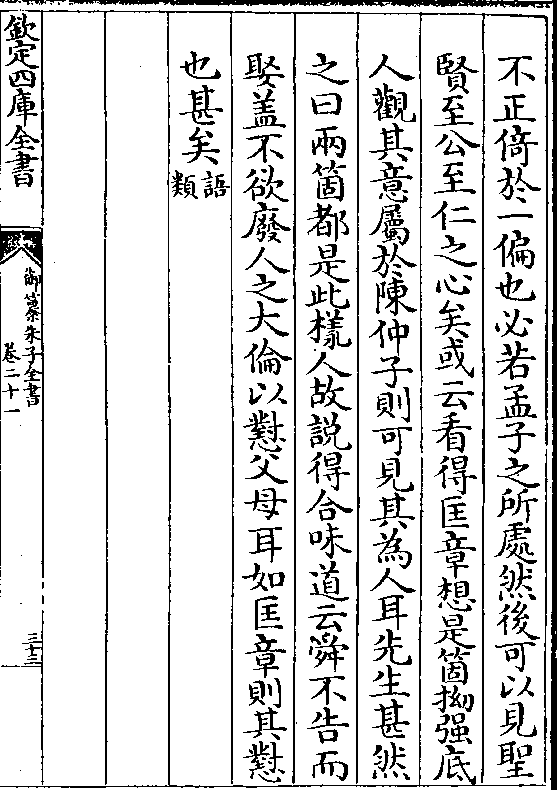 不正倚於一偏也必若孟子之所處然後可以見聖
賢至公至仁之心矣或云看得匡章想是箇拗强底
人觀其意屬於陳仲子則可見其為人耳先生甚然
之曰兩箇都是此樣人故説得合味道云舜不告而
娶盖不欲廢人之大倫以懟父母耳如匡章則其懟
也甚矣語類
欽定四庫全書
御纂朱子全書
卷二十一
三十三